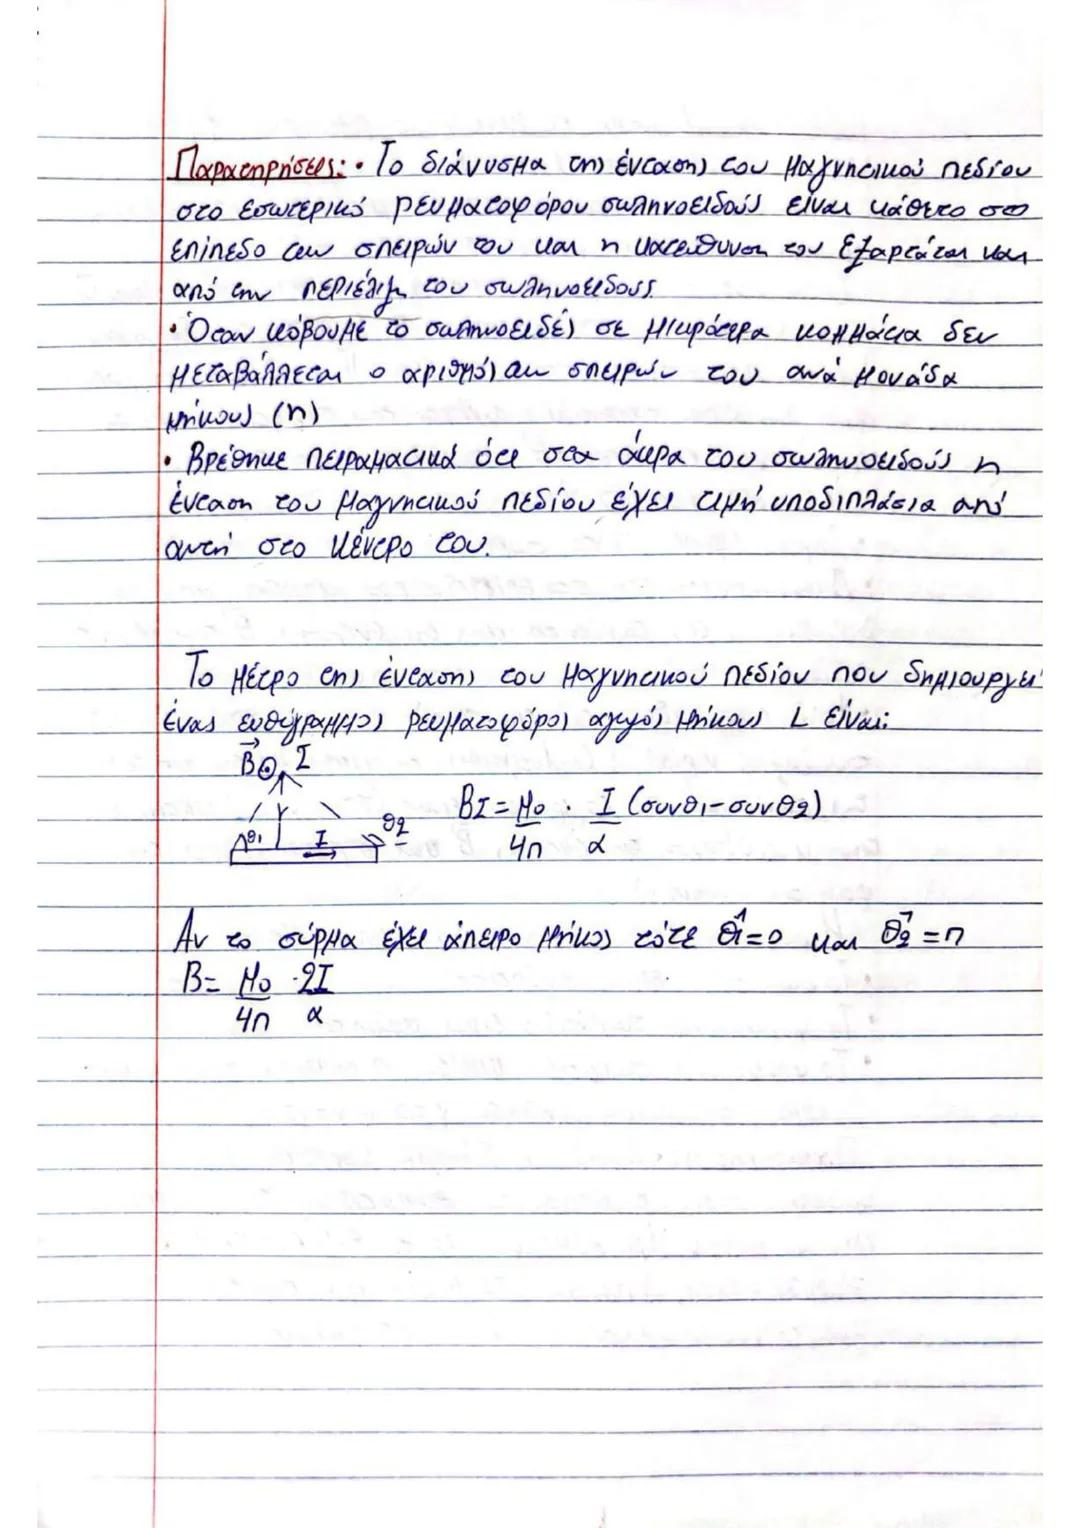 Παρατηρήσεις: • Το διάνυσμα της έντασης του μαγνητικού πεδίου
στο εσωτερικό ρευματοφόρου σωληνοειδούς είναι κάθετο στο
επίπεδο των σπειρών του και η κατεύθυνση του εξαρτάται και
από την περιέλιξη του σωληνοειδούς.
• Όταν κόβουμε το σωληνοειδές σε μικρότερα κομμάτια δεν
μεταβάλλεται ο αριθμός των σπειρών του ανά μονάδα
μήκους (n)
• Βρέθηκε πειραματικά ότι στα άκρα του σωληνοειδούς η
ένταση του μαγνητικού πεδίου έχει τιμή υποδιπλάσια από
αυτή στο κέντρο του.
Το μέτρο της έντασης του μαγνητικού πεδίου που δημιουργεί
ένας ευθύγραμμος ρευματοφόρος αγωγός μήκους L είναι:
B⃗ ⊙ I
θ1 I θ2
BI = μο/4π · I/α (συνθ1-συνθ2)
Αν το σύρμα έχει άπειρο μήκος τότε θ1=0 και θ2=π
B= μο/4π · 2I/α